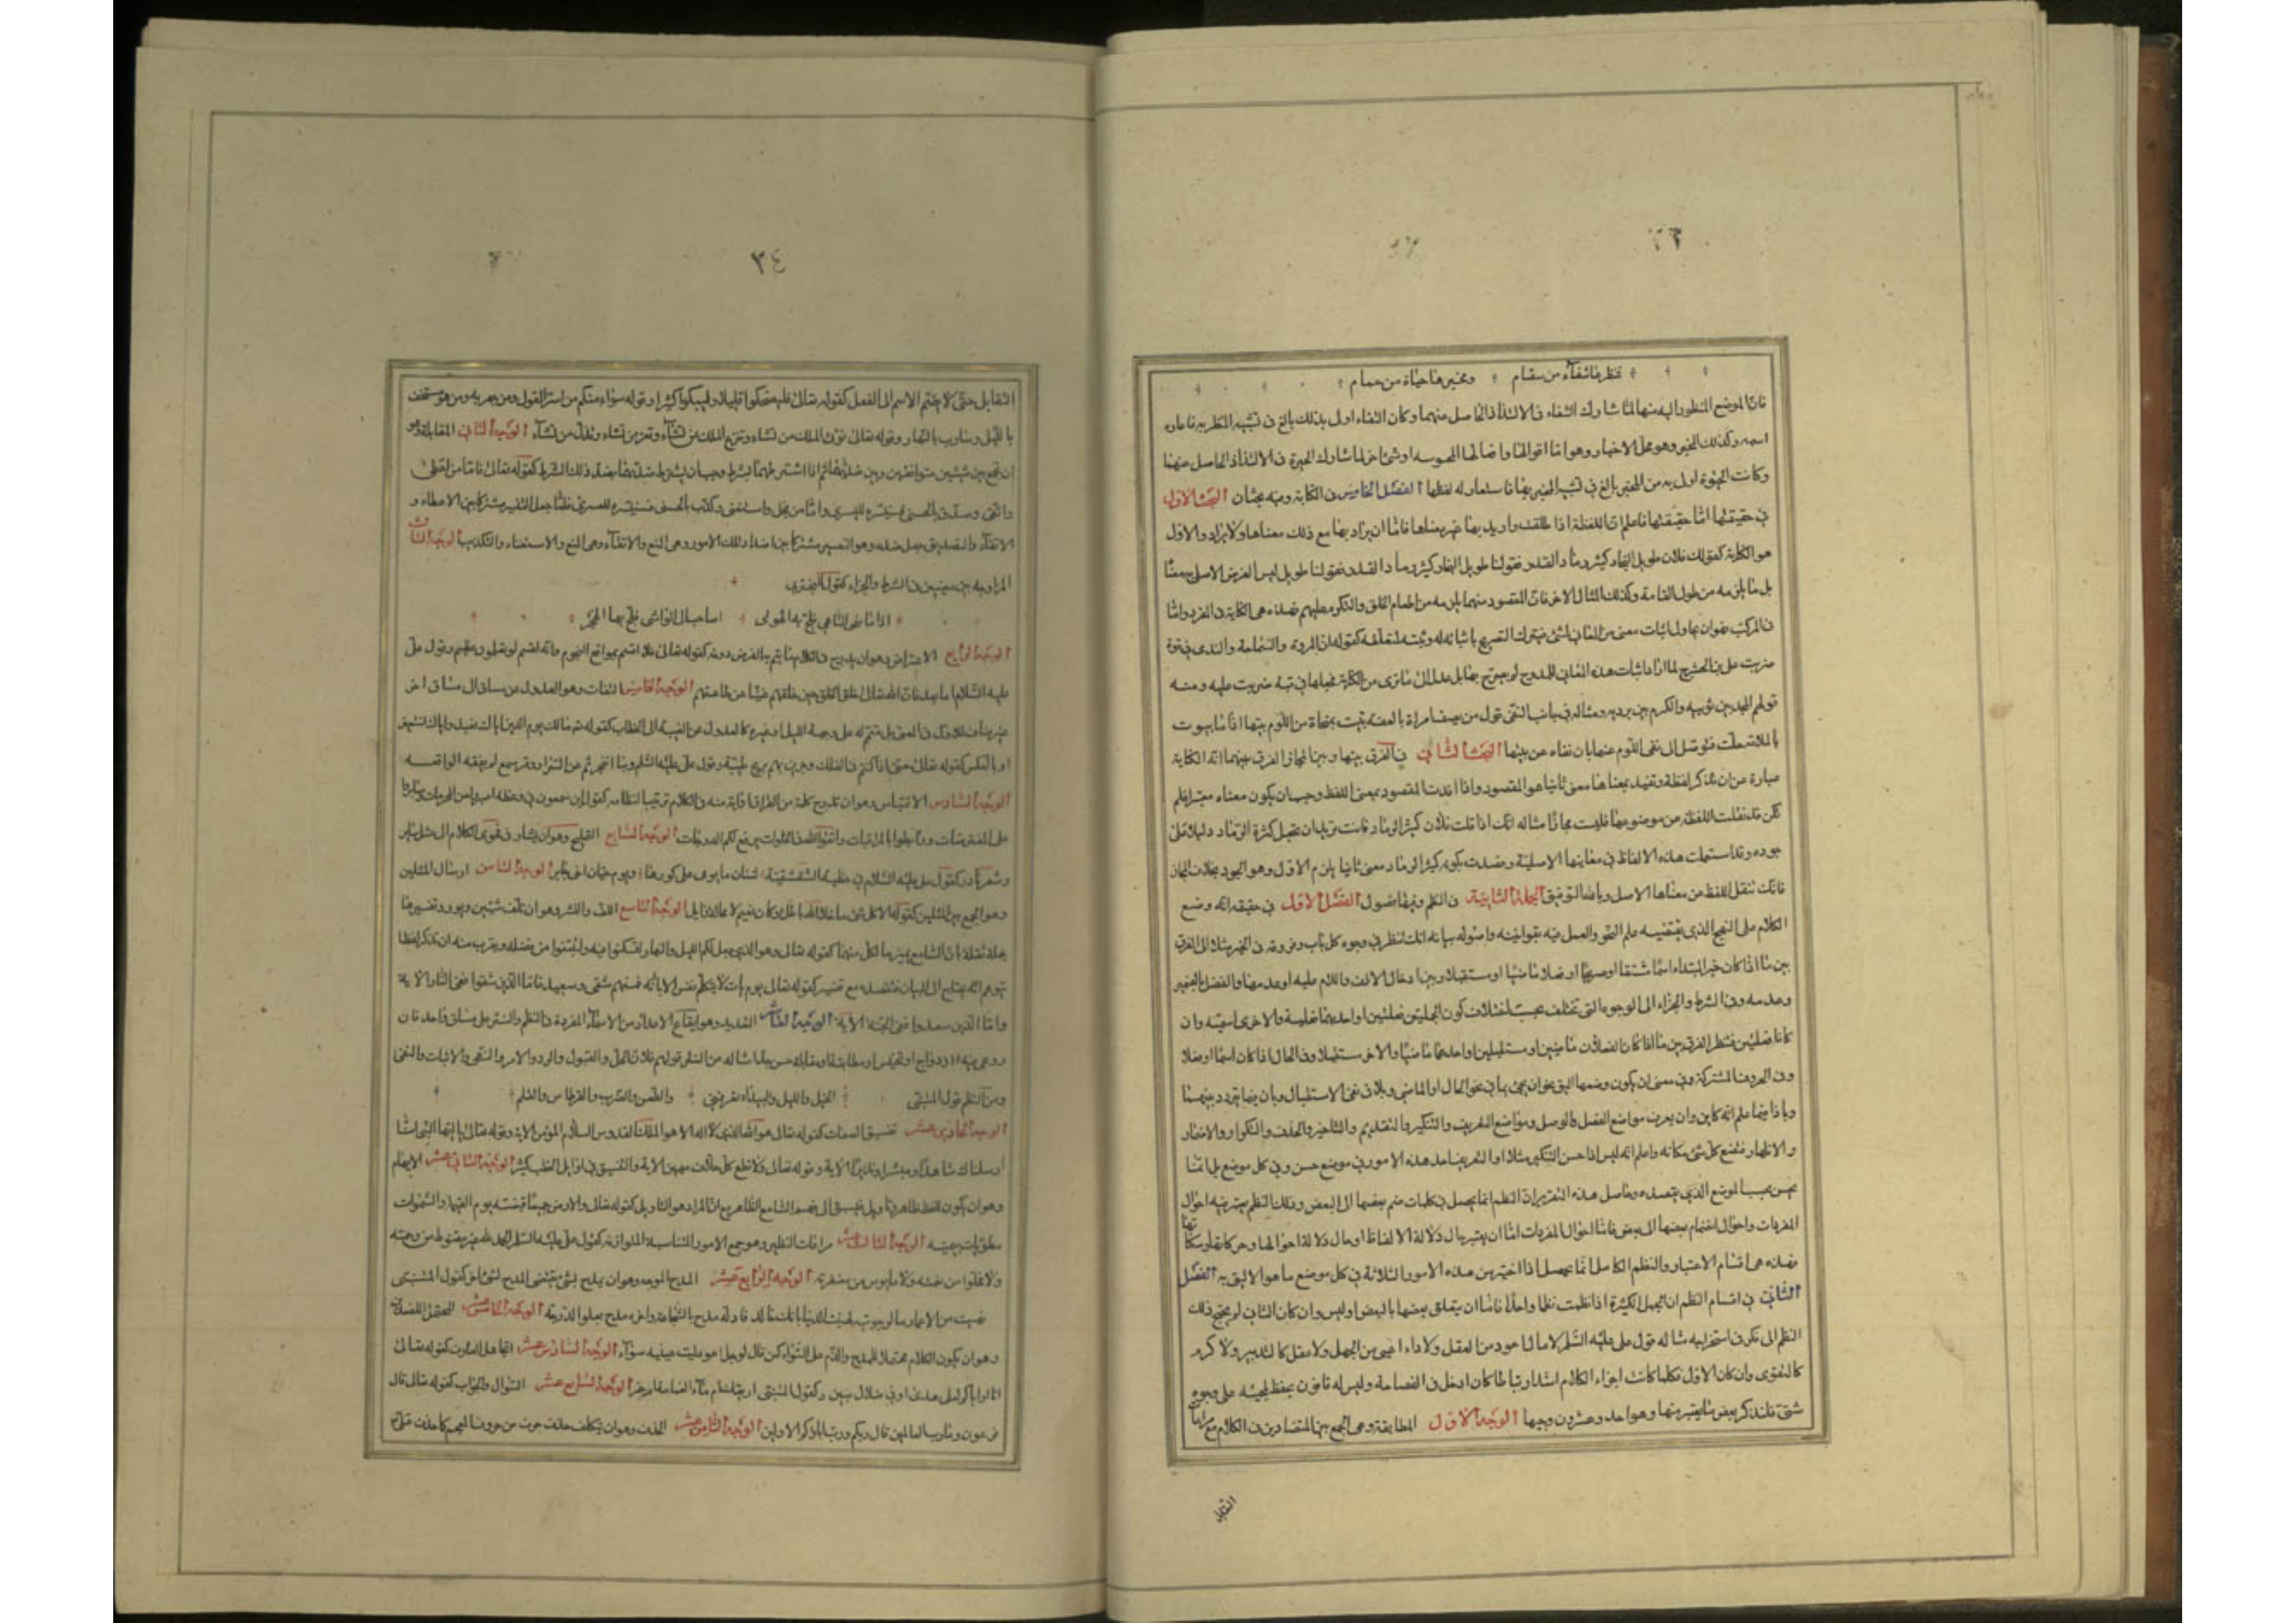 فظرها شفاء من سقام ومخبرها حياة من حمام
فانّ الموضع المنظور اليه منها لمّا شارك الشفاء فى الالتذاذ الحاصل منهما وكان الشفاء اولى بذلك بالغ فى تشبيه المنظر به فاعاره
اسمه وكذلك المخبر وهو محلّ الاخبار وهو امّا اقوالها وافعالها المحسوسه او شئ اخر لما شارك الحيوة فى الالتذاذ الحاصل منهما
وكانت الحيوة اولى به من المخبر بالغ فى تشبيه المخبر بها فاستعار له لفظها الفصل الخامس فى الكناية وفيه بحثان البحث الاول
فى حقيقتها امّا حقيقتها فاعلم انّ اللفظة اذا طلقت واريد بها غير معناها فامّا ان يراد بها مع ذلك معناها اولا يراد والاول
هو الكناية كقولك فلان طويل النجاد كثير رماد القدر فقولنا طويل النجاد كثير رماد القدر فقولنا طويل ليس الغرض الاصلى معنا
بل ما يلزمه من طول القامة وكذلك المثال الاخر فانّ المقصود منهما يلزمه من اطعام الخلق والتكرم عليهم فهذه هى الكناية فى المفرد وامّا
فى المركب فهو ان يحاول اثبات معنى من المعانى لشئ فيترك التصريح باثباته له ويثبته لمتعلقه كقوله ان المروة والسماحة والندى فى قبة
ضربت على ابن الحشرج لما اراد اثبات هذه المعانى للممدوح لم يصرح بها بل عدل الى ما ترى من الكناية فجعلها فى قبة ضربت عليه ومنه
قولهم المجد بين ثوبيه والكرم بين برديه ومثاله فى جانب النفى قول من يصف امراة بالعفه يبيت بمنجاة من اللّوم بيتها اذا ما بيوت
بالملامة حلّت فتوصّل الى نفى اللّوم عنها بان نفاه عن بيتها البحث الثانى فى الفرق بينها وبين المجاز الفرق بينهما انّ الكناية
عبارة عن ان تذكر لفظة وتفيد بمعناها معنى ثانيا هو المقصود واذا افدت المقصود بمعنى اللفظ وجب ان يكون معناه معتبرا فلم
تكن قد نقلت اللفظه عن موضوعها فليست مجازا مثاله انك اذا قلت فلان كثير الرماد فانت تريد ان تجعل كثرة الرماد دليلا على
جوده وقد استعملت هذه الالفاظ فى معانيها الاصلية وقصدت بكونه كثير الرماد معنى ثانيا يلزم الاول وهو الجود بخلاف المجاز
فانك تنقل اللفظ عن معناها الاصل وبالله التوفيق الجملة الثانية فى النظم وفيها فصول الفصل الاول فى حقيقته انه وضع
الكلام على النهج الذى يقتضيه علم النحو والعمل فيه بقوانينه واصوله بيانه انك تنظر فى وجوه كل باب وفروقه فى الخبر مثلا الى الفرق
بين ما اذا كان خبر المبتداء اسما مشتقا او صريحا او فعلا ماضيا او مستقبلا وبين ادخال الالف واللام عليه او عدمها والفصل بالضمير
وعدمه وفى الشرط والجزاء الى الوجوه التى تختلف بحسب اختلاف كون الجملتين فعليتين او احديهما فعلية والاخرى اسميّه وان
كانا فعليين فتنظر الفرق بين ما اذا كان الفعلان ماضيين او مستقبلين او احدهما ماضيا والاخر مستقبلا وفى الحال اذا كان اسما او فعلا
وفى الحروف المشتركة فى معنى ان يكون وضعها اليق نحو ان يجئ بما فى نفى الحال او الماضى وبلا فى نفى الاستقبال وبان فيما يتردد بينهما
وباذا فيما علم انّه كاين وان يعرف مواضع الفصل والوصل ومواضع التعريف والتنكير والتقديم والتاخير والحذف والتكرار والاضمار
والاظهار فتضع كل شئ مكانه واعلم انّه ليس اذا حسن التنكير مثلا او التعريف احد هذه الامور فى موضع حسن وفى كل موضع بل انّما
يحسن بحسب الموضع الذى يقصده وحاصل هذه التقريرات النظم انّما يحصل فى كلمات ضم بعضها الى البعض وذلك النظم يعتبر فيه احوال
المفردات واحوال انضمام بعضها الى بعض فامّا احوال المفردات امّا ان يعتبر حال دلالة الالفاظ او حال دلالة احوالها وحركاتها وسكناتها
فهذه هى اقسام الاعتبار والنظم الكامل انّما يحصل اذا اختير من هذه الامور الثلاثة فى كل موضع ما هو الاليق به الفصل
الثانى فى اقسام النظم ان الجمل الكثيرة اذا نظمت نظما واحدا فامّا ان يتعلق بعضها بالبعض او ليس وان كان الثانى لم يحتج ذلك
النظم الى فكر فى استخراجه مثاله قول على عليه السّلم لا مال اعود من العقل ولا داء اعيى من الجهل ولا عقل كالتدبير ولا كرم
كالتقوى وان كان الاول فكلما كانت اجزاء الكلام اشدّ ارتباطا كان ادخل فى الفصاحة وليس له قانون يحفظ لمجيئه على وجوه
شتى فلنذكر بعض ما يعتبر منها وهو احد وعشرون وجها الوجه الاول المطابقة وهى الجمع بين المتضادين فى الكلام مع مراعاة
التقابل
٣٤
التقابل حتّى لا يضم الاسم الى الفعل كقوله تعالى فليضحكوا قليلا وليبكوا كثيرا وقوله سواء منكم من اسرّ القول ومن جهر به ومن هو مستخف
بالليل وسارب بالنهار وقوله تعالى تؤتى الملك من تشاء وتنزع الملك ممن تشاء وتعز من تشاء وتذل من تشاء الوجه الثانى المقابلة وهو
ان تجمع بين شيئين متوافقين وبين ضدّيهما ثم اذا اشترطهما بشرط وجب ان يشترط ضدّيهما بضد ذلك الشرط كقوله تعالى فامّا من اعطى
واتّقى وصدّق بالحسنى فسنيسّره لليسرى وامّا من بخل واستغنى وكذّب بالحسنى فسنيسّره للعسرى فلمّا جعل التيسير مشتركا بين الاعطاء و
الاتقاء والتصديق جعل ضدّه وهو التعسير مشتركا بين اضداد تلك الامور وهى المنع والاتقاء وهى المنع والاستغناء والتكذيب الوجه الثالث
المزاوجه بين معنيين فى الشرط والجزاء كقول البحترى
اذا ما نهى النّاهى فلج بى الهوى اصاخت الى الواشى فلجّ بها الهجر
الوجه الرابع الاعتراض وهو ان يدرج فى الكلام ما يتم به الغرض دونه كقوله تعالى فلا اقسم بمواقع النجوم وانّه لقسم لو تعلمون عظيم وقول على
عليه السّلام امّا بعد فانّ الله تعالى خلق الخلق حين خلقهم غنيّا عن طاعتهم الوجه الخامس التفات وهو العدول عن مساق الى مساق اخر
او بالعكس كقوله تعالى حتّى اذا كنتم فى الفلك وجرين بهم بريح طيّبة وقول على عليه السّلم
الوجه السّادس الاقتباس وهو ان تدرج كلمة من القران او اية منه فى الكلام تزيينا لنظامه كقول ابن سمعون فى وعظه اصبروا عن المحرمات وصابروا
على المفترضات ورابطوا بالمراقبات واتّقوا الله فى الخلوات يرفع لكم الدرجات الوجه السّابع التلميح وهو ان يشار فى فحوى الكلام الى مثل ساير
وشعر نادر كقول على عليه السّلام فى خطبته الشقشقيّة شتّان ما يومى على كورها ويوم حيّان اخى جابر الوجه الثامن ارسال المثلين
وهو الجمع بين المثلين كقوله الا كل شئ ما خلا الله باطل وكل نعيم لا محالة زايل الوجه التاسع اللف والنشر وهو ان تلفّ شيئين وتورد تفسيرهما
جملة ثقة بانّ السّامع يميز ما لكل منهما كقوله تعالى وهو الذى جعل لكم الليل والنهار لتسكنوا فيه ولتبتغوا من فضله ويقرب منه ان تذكر لفظا
يتوهم انّه يحتاج الى البيان فتقصده مع تفسير كقوله تعالى يوم يات لا تكلّم نفس الا باذنه فمنهم شقى وسعيد فامّا الذين شقوا ففى النّار الاية
وامّا الّذين سعدوا ففى الجنّة الاية الوجه العاشر التعديد وهو ايقاع الاعداد من الاسماء المفردة فى النظم والنثر على سياق واحد فان
روعى فيه ازدواج او تجنيس او مطابقة او مقابلة حسن جدّا مثاله من النثر قولهم فلان اليه الحلّ والعقد والقبول والرد والامر والنهى والاثبات والنفى
ومن النظم قول المتنبّى الخيل والليل والبيداء تعرفنى والطّعن والضّرب والقرطاس والقلم
الوجه الحادى عشر تنسيق الصفات كقوله تعالى هو الله الذى لا اله الا هو الملك القدوس السلام المؤمن الاية وقوله تعالى يا ايّها النّبى انّا
ارسلناك شاهدا ومبشرا ونذيرا الاية وقوله تعالى ولا تطع كل حلّاف مهين الاية والتنسيق فى اوايل الخطب كثير الوجه الثانى عشر الايهام
وهو ان يكون للفظ ظاهر وتاويل فيسبق الى فهم السّامع الظاهر مع انّ المراد هو التاويل كقوله تعالى والارض جميعا قبضته يوم القيمة والسّموات
مطويّات بيمينه الوجه الثالث عشر مراعات النظير وهو جمع الامور المتناسبة المتوازنة كقول على عليه السّلم الحمد لله غير مقنوط من رحمته
ولا مخلوا من نعمته ولا مايوس من مغفرته الوجه الرابع عشر المدح الموجه وهو ان يمدح بشئ يقتضى المدح بشئ اخر كقول المتنبّى
نهبت من الاعمار ما لو حويته لهنّئت الدنيا بانك خالد فاوله مدح بالشجاعة واخره مدح بعلو الدرجة الوجه الخامس عشر المحتمل للضدّين
وهو ان يكون الكلام محتملا للمدح والذّم على السّواء كمن قال لرجل اعور ليت عينيه سواء الوجه السّادس عشر تجاهل العارف كقوله تعالى
انا او اياكم لعلى هدى او فى ضلال مبين وكقول المتنبّى اريقك ام ماء الغمامة ام خمر الوجه السّابع عشر السّؤال والجواب كقوله تعالى قال
فرعون وما رب العالمين قال ربكم ورب ابائكم الاولين الوجه الثّامن عشر الحذف وهو ان يتكلف حذف حرف من حروف المعجم كما حذف على